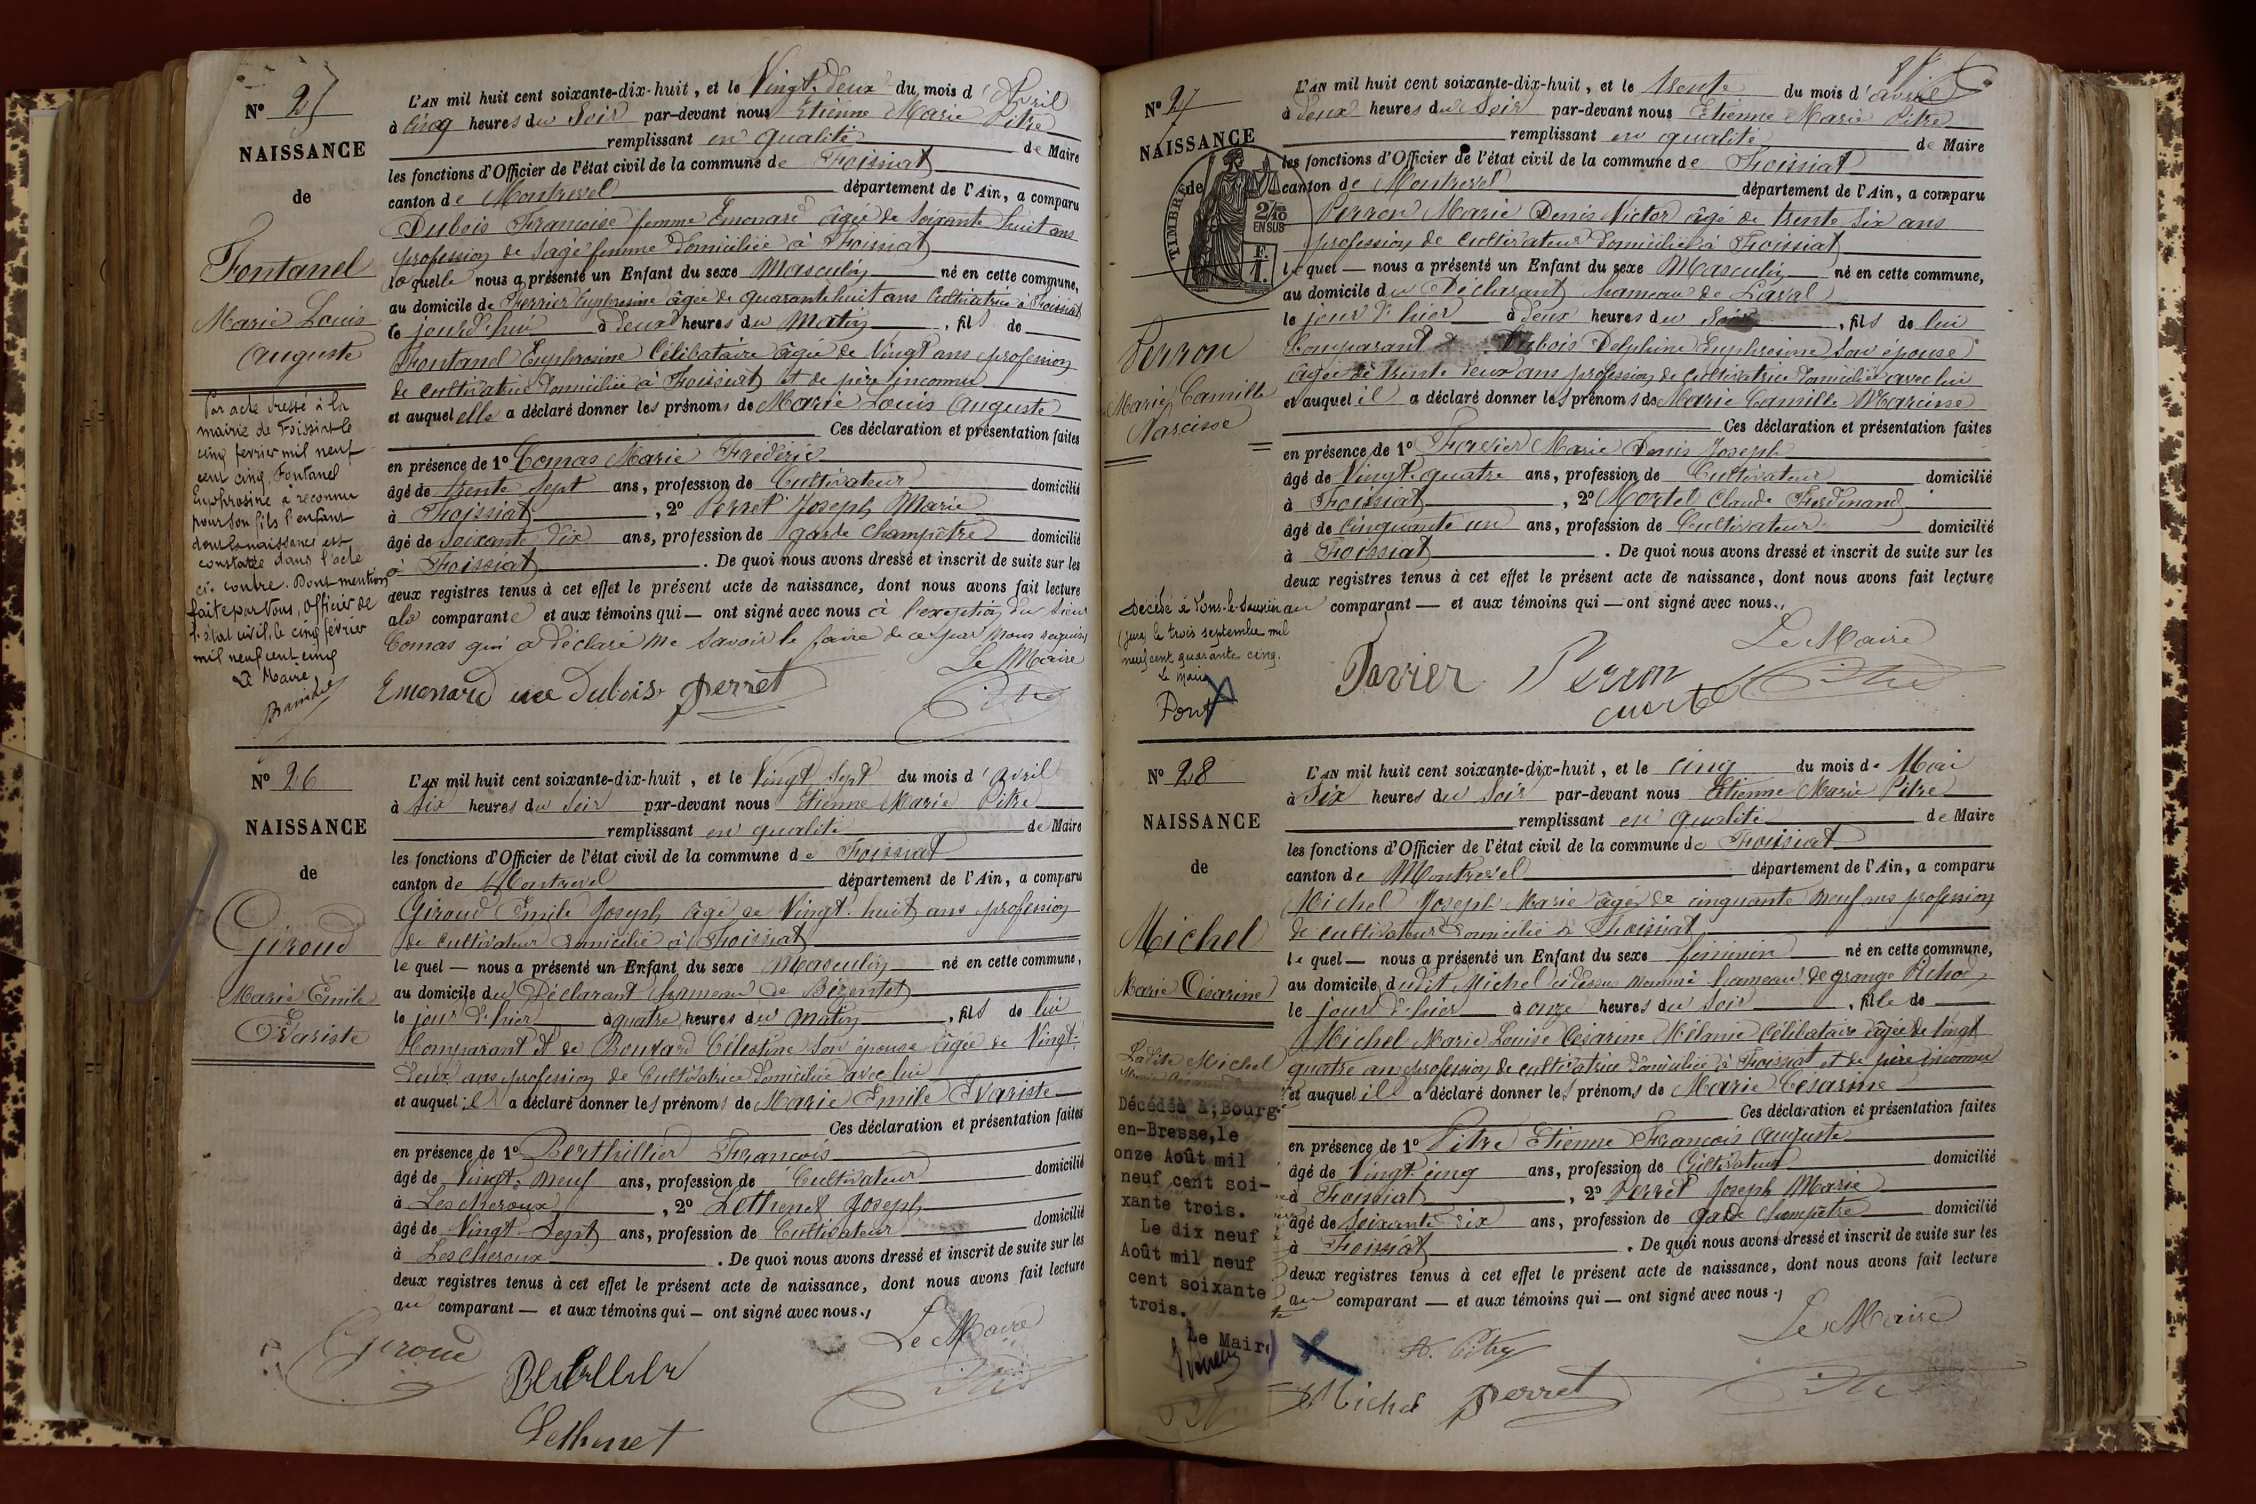 Nº 25
NAISSANCE
de
Fontanel
Marie Louis
Auguste
Par acte dressé à la
mairie de Foissiat le
cinq février mil neuf
cent cinq, Fontanel
Euphrosine a reconnu
pour son fils l'enfant
dont la naissance est
constatée dans l'acte
ci-contre. Dont mention
faite par Nous, Officier de
l'état civil, le cinq février
mil neuf cent cinq
Le Maire
L'AN mil huit cent soixante-dix-huit, et le Vingt-deux du mois d'Avril
à Cinq heures du Soir par-devant nous Etienne Marie Pitre
remplissant en qualité de Maire
les fonctions d'Officier de l'état civil de la commune de Foissiat
canton de Montrevel département de l'Ain, a comparu
Dubois Françoise femme Emonard âgée de Soixante huit ans
profession de Sage femme domiciliée à Foissiat
laquelle nous a présenté un Enfant du sexe Masculin né en cette commune,
au domicile de Ferrier Euphrosine âgée de quarante huit ans Cultivatrice à Foissiat
le jourd'hui à deux heures du Matin, fils de
Fontanel Euphrosine Célibataire âgée de Vingt ans profession
de cultivatrice domiciliée à Foissiat et de père inconnu
et auquel elle a déclaré donner les prénoms de Marie Louis Auguste
Ces déclaration et présentation faites
en présence de 1º Comas Marie Frédéric
âgé de trente sept ans, profession de Cultivateur domicilié
à Foissiat, 2º Perret Joseph Marie
âgé de Soixante dix ans, profession de garde champêtre domicilié
à Foissiat. De quoi nous avons dressé et inscrit de suite sur les
deux registres tenus à cet effet le présent acte de naissance, dont nous avons fait lecture
à la comparante et aux témoins qui — ont signé avec nous à l'exception du Sieur
Comas qui a déclaré ne savoir le faire de ce par nous requis
Le Maire
Emonard née Dubois Perret Pitre
Nº 26
NAISSANCE
de
Giroud
Marie Emile
Evariste
L'AN mil huit cent soixante-dix-huit, et le Vingt Sept du mois d'Avril
à Six heures du Soir par-devant nous Etienne Marie Pitre
remplissant en qualité de Maire
les fonctions d'Officier de l'état civil de la commune de Foissiat
canton de Montrevel département de l'Ain, a comparu
Giroud Emile Joseph âgé de Vingt-huit ans profession
de cultivateur domicilié à Foissiat
lequel — nous a présenté un Enfant du sexe Masculin né en cette commune,
au domicile du Déclarant hameau de Bézentet
le jour d'hier à quatre heures du matin, fils de lui
Comparant et de Bouvard Célestine son épouse âgée de Vingt-
deux ans profession de Cultivatrice domiciliée avec lui
et auquel il a déclaré donner les prénoms de Marie Emile Evariste
Ces déclaration et présentation faites
en présence de 1º Berthillier François
âgé de Vingt-Neuf ans, profession de Cultivateur domicilié
à Lescheroux, 2º Lethenet Joseph
âgé de Vingt-Sept ans, profession de Cultivateur domicilié
à Lescheroux. De quoi nous avons dressé et inscrit de suite sur les
deux registres tenus à cet effet le présent acte de naissance, dont nous avons fait lecture
au comparant — et aux témoins qui — ont signé avec nous.
Le Maire
Giroud Berthillier Pitre
Lethenet
Nº 27
NAISSANCE
de
TIMBRE
2/10 EN SUS
F. 1.
Perron
Marie Camille
Narcisse
Décédé à Lons-le-Saunier
(Jura) le trois septembre mil
neuf cent quarante cinq.
Le Maire
Pont
L'AN mil huit cent soixante-dix-huit, et le trente du mois d'avril
à deux heures du Soir par-devant nous Etienne Marie Pitre
remplissant en qualité de Maire
les fonctions d'Officier de l'état civil de la commune de Foissiat
canton de Montrevel département de l'Ain, a comparu
Perron Marie Denis Victor âgé de trente six ans
profession de cultivateur domicilié à Foissiat
lequel — nous a présenté un Enfant du sexe Masculin né en cette commune,
au domicile du Déclarant hameau de Laval
le jour d'hier à deux heures du Soir, fils de lui
Comparant Dubois Delphine Euphrosine son épouse
âgée de trente deux ans profession de Cultivatrice domiciliée avec lui
et auquel il a déclaré donner les prénoms de Marie Camille Narcisse
Ces déclaration et présentation faites
en présence de 1º Favier Marie Denis Joseph
âgé de Vingt-quatre ans, profession de Cultivateur domicilié
à Foissiat, 2º Mortel Claude Ferdinand
âgé de Cinquante un ans, profession de Cultivateur domicilié
à Foissiat. De quoi nous avons dressé et inscrit de suite sur les
deux registres tenus à cet effet le présent acte de naissance, dont nous avons fait lecture
au comparant — et aux témoins qui — ont signé avec nous.
Le Maire
Favier Perron Pitre
Mortel
Nº 28
NAISSANCE
de
Michel
Marie Césarine
Ladite Michel
Décédée à Bourg-
en-Bresse, le
onze Août mil
neuf cent soi-
xante trois.
Le dix neuf
Août mil neuf
cent soixante
trois.
Le Maire
L'AN mil huit cent soixante-dix-huit, et le cinq du mois de Mai
à Six heures du Soir par-devant nous Etienne Marie Pitre
remplissant en qualité de Maire
les fonctions d'Officier de l'état civil de la commune de Foissiat
canton de Montrevel département de l'Ain, a comparu
Michel Joseph Marie âgé de cinquante neuf ans profession
de cultivateur domicilié à Foissiat
lequel — nous a présenté un Enfant du sexe féminin né en cette commune,
au domicile dudit Michel ci dessus nommé hameau de grange Pichod
le jour d'hier à onze heures du Soir, fille de
Michel Marie Louise Césarine Mélanie Célibataire âgée de Vingt
quatre ans profession de cultivatrice domiciliée à Foissiat et de père inconnu
et auquel il a déclaré donner les prénoms de Marie Césarine
Ces déclaration et présentation faites
en présence de 1º Pitre Etienne François Auguste
âgé de Vingt-cinq ans, profession de Cultivateur domicilié
à Foissiat, 2º Perret Joseph Marie
âgé de Soixante dix ans, profession de garde champêtre domicilié
à Foissiat. De quoi nous avons dressé et inscrit de suite sur les
deux registres tenus à cet effet le présent acte de naissance, dont nous avons fait lecture
au comparant — et aux témoins qui — ont signé avec nous.
Le Maire
A. Pitre
Michel Perret Pitre